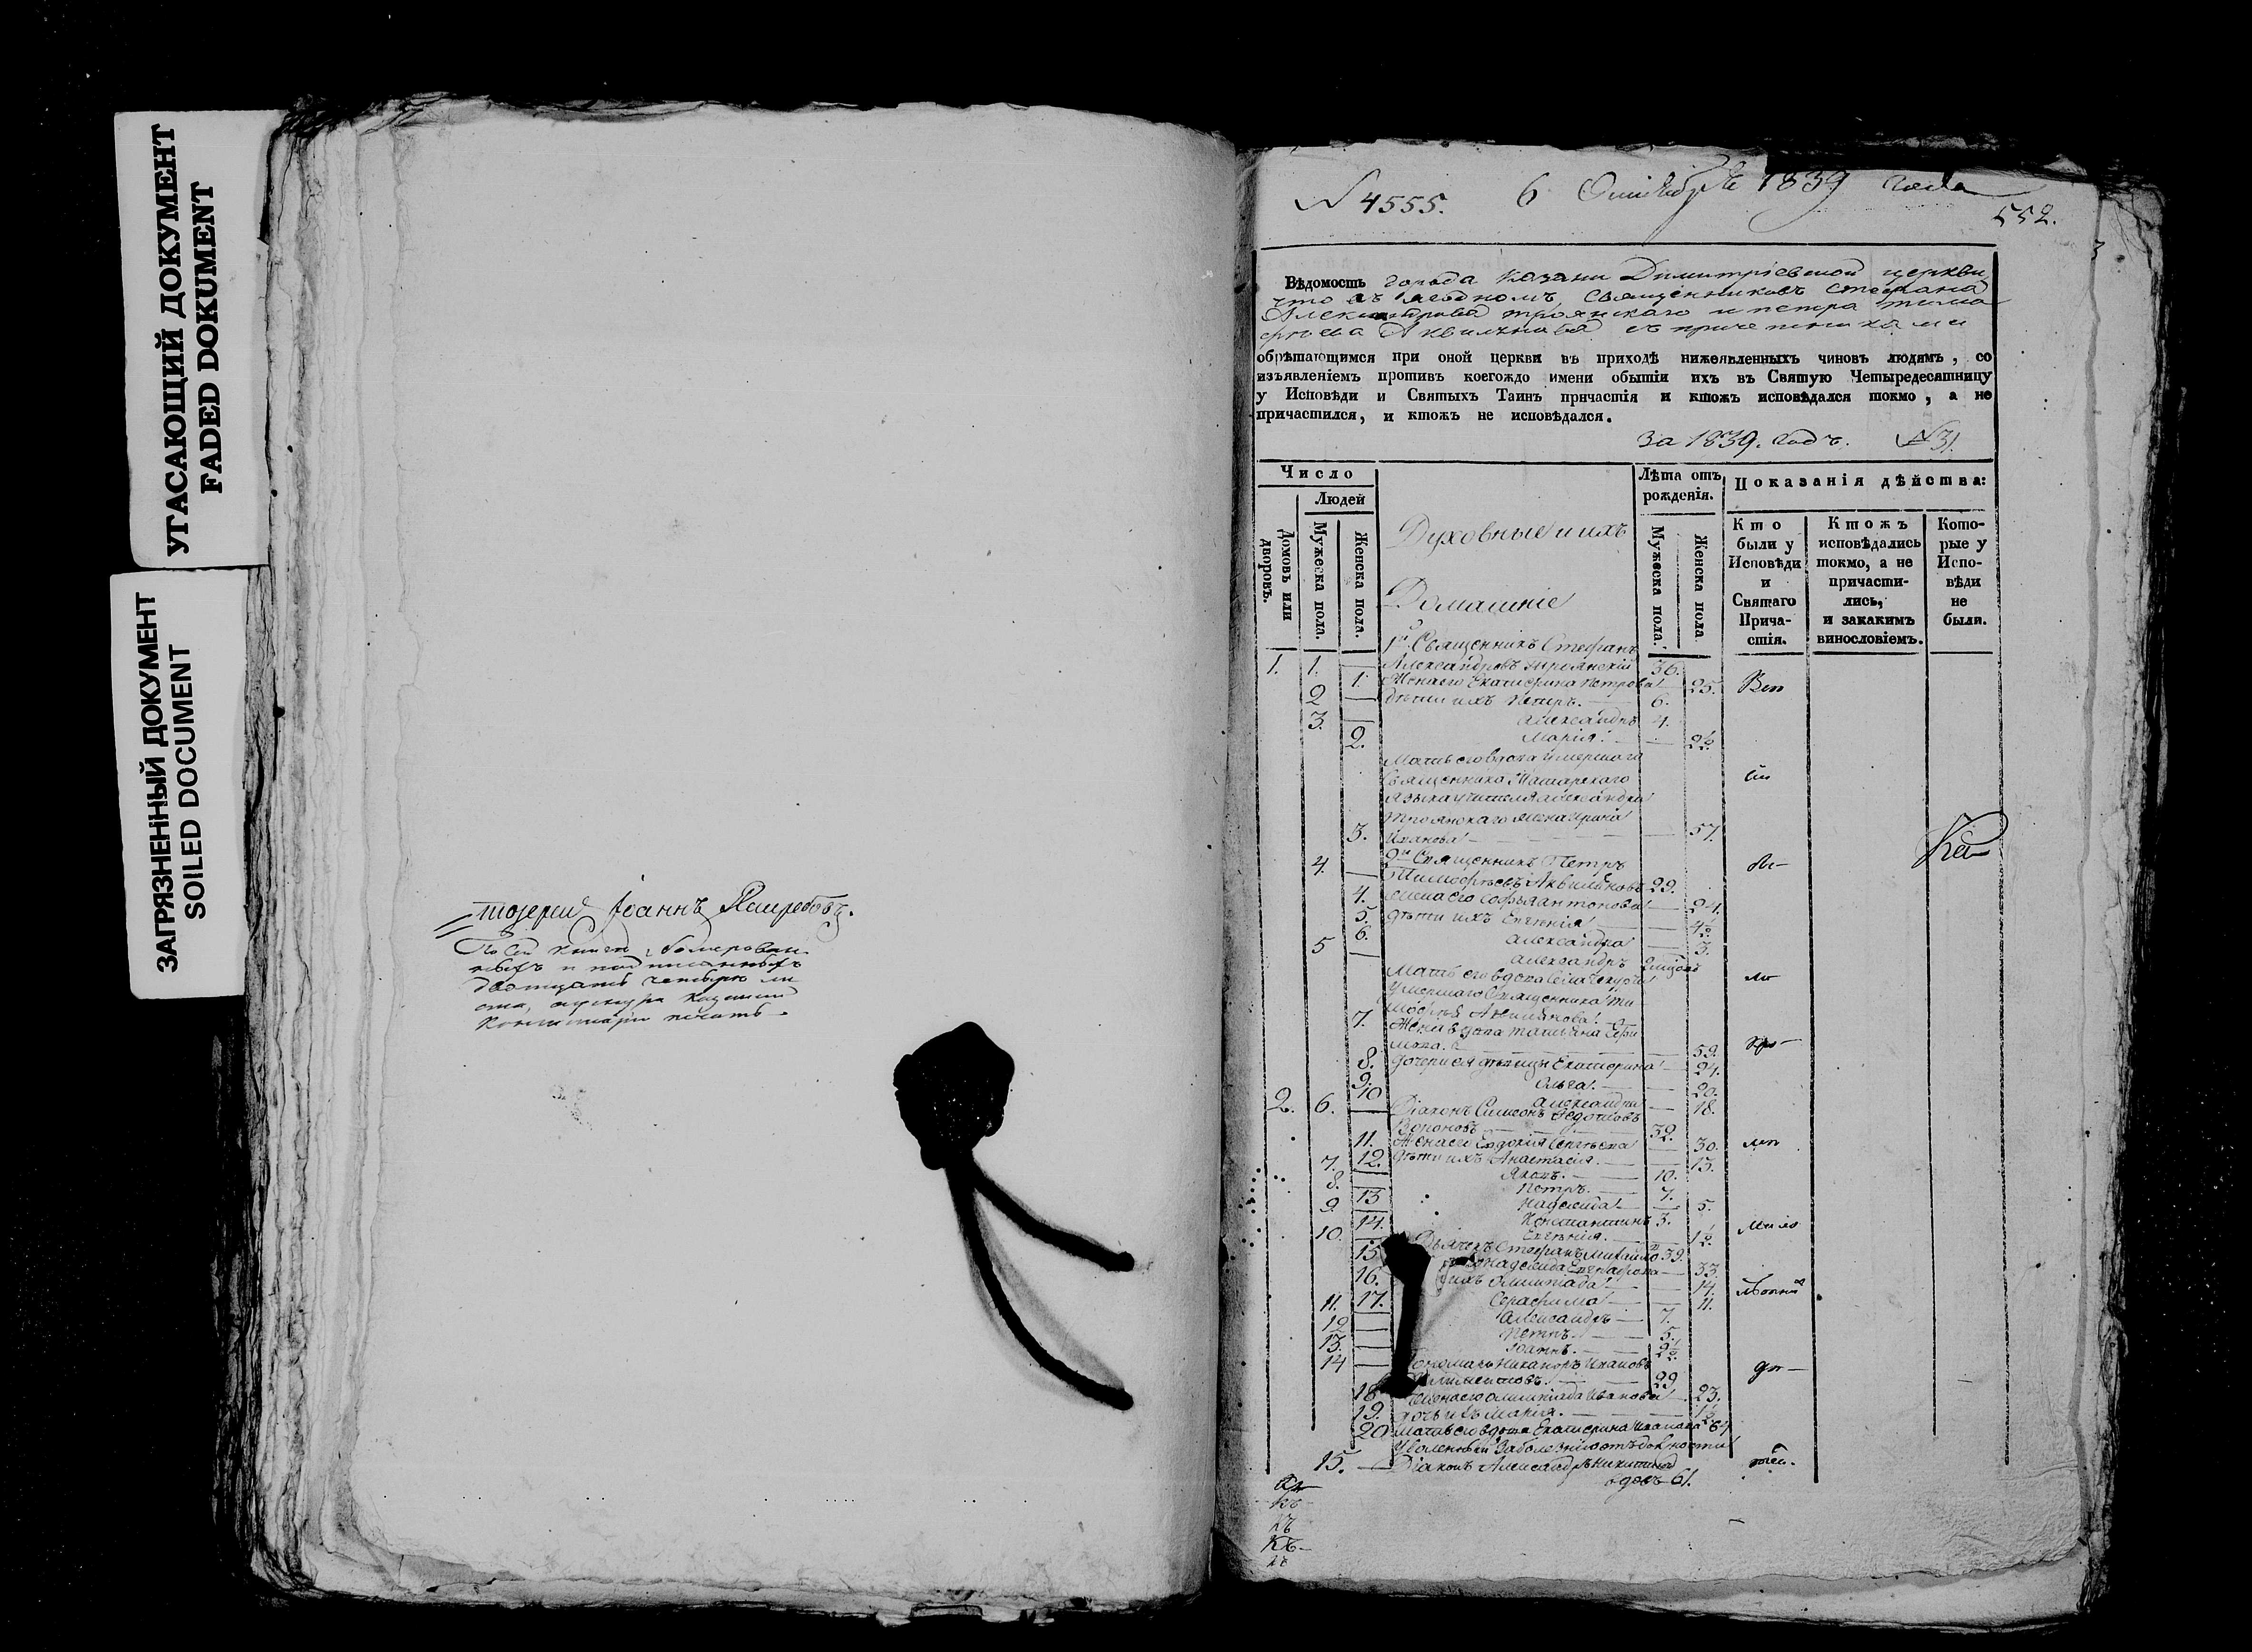 УГАСАЮЩИЙ ДОКУМЕНТ
FADED DOKUMENT
ЗАГРЯЗНЕННЫЙ ДОКУМЕНТ
SOILED DOCUMENT
Іоаннъ
По сей книге
двадцать четыре ли
печать
N 4555. 6 Октября 1839 года
552.
Вѣдомость города Казани Димитріевской церкви,
что въ Ягодномъ, Священниковъ Стефана
Александрова Троянскаго и Петра Тимо
фѣева Аквилянова съ причетниками
обрѣтающимся при оной церкви въ приходѣ нижеявленныхъ чиновъ людямъ, со
изъявленіемъ противъ коегождо имени бытіи ихъ въ Святую Четыредесятницу
у Исповѣди и Святыхъ Таинъ причастія и ктожъ исповѣдался токмо, а не
причастился, и ктожъ не исповѣдался.
за 1839. годъ. №31.
Число
Людей
Домовъ или дворовъ.
Мужеска пола.
Женска пола.
Духовные и ихъ
Домашніе
Лѣта отъ рожденія.
Мужеска пола.
Женска пола
Показанія дѣйства:
Кто были у Исповѣди и Святаго Причастія.
Ктожъ исповѣдались токмо, а не причастились, и закакимъ винословіемъ.
Которые у Исповѣди не были.
1й Священникъ Стефанъ
1. 1. — Александровъ Троянскій 36.
1. Жена его Екатерина Петрова 25.
2 — дѣти ихъ Петръ. 6.
3. — Александръ 4.
2. Марія. 2½
Мать его вдова умершаго
Священника Татарскаго
языка учителя Александра
Троянскаго жена Ирина
3. Иванова 57.
4. 2й Священникъ Петръ
— Тимофѣевъ Аквиляновъ 29.
4. жена его Софья Антонова 24.
5. дѣти ихъ Евгенія 4½
6. Александра 3.
5 — Александръ
Мать его вдова села
умершаго Священника Ти
мофѣя Аквилянова.
7. Жена вдова Татьяна Ефи
мова. 59.
8. дочери ея дѣвицы Екатерина 24.
9. Ольга. 20.
10 Александра 18.
2. 6. — Діаконъ Симеонъ Ѳедотовъ
Вороновъ 32.
11. Жена его Евдокія 30.
12. дѣти ихъ Анастасія. 13.
7. — Яковъ. 10.
8. — Петръ. 7.
13 Надежда 5.
9. — Константинъ 3.
14. Евгенія. 1½
10. Дьячекъ Стефанъ Михайло 39.
15. Надежда 33.
16. ихъ Олимпіада 14.
17. Серафима 11.
11. — Александръ 7.
12 — Петръ. 5.
13. — Іоаннъ. 2½
14 — Пономарь Никаноръ Ивановъ
29.
18 Жена его Олимпіада Иванова 23.
19. дочь ихъ Марія. 1½
20 Мать его вдова Екатерина Иванова 64
Уволенный за болезнію отъ должности
15. — Діаконъ Александръ Никитинъ
вдовъ 61.